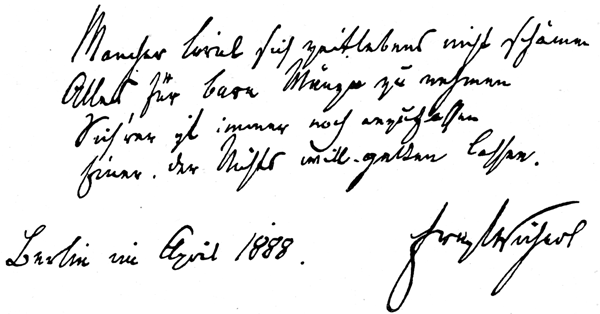 Mancher wird sich zeitlebens nicht schämen
Alles für bare Münze zu nehmen
Sich'rer ist immer noch anzufassen
Einer, der Nichts will gelten lassen.
Berlin im April 1888.